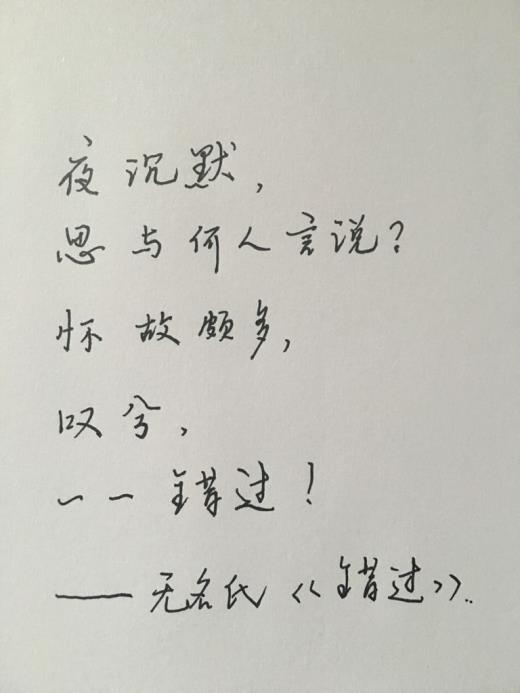 夜沉默,
思与何人言说?
怀故颇多,
叹兮,
一一错过!
——无名氏《错过》..